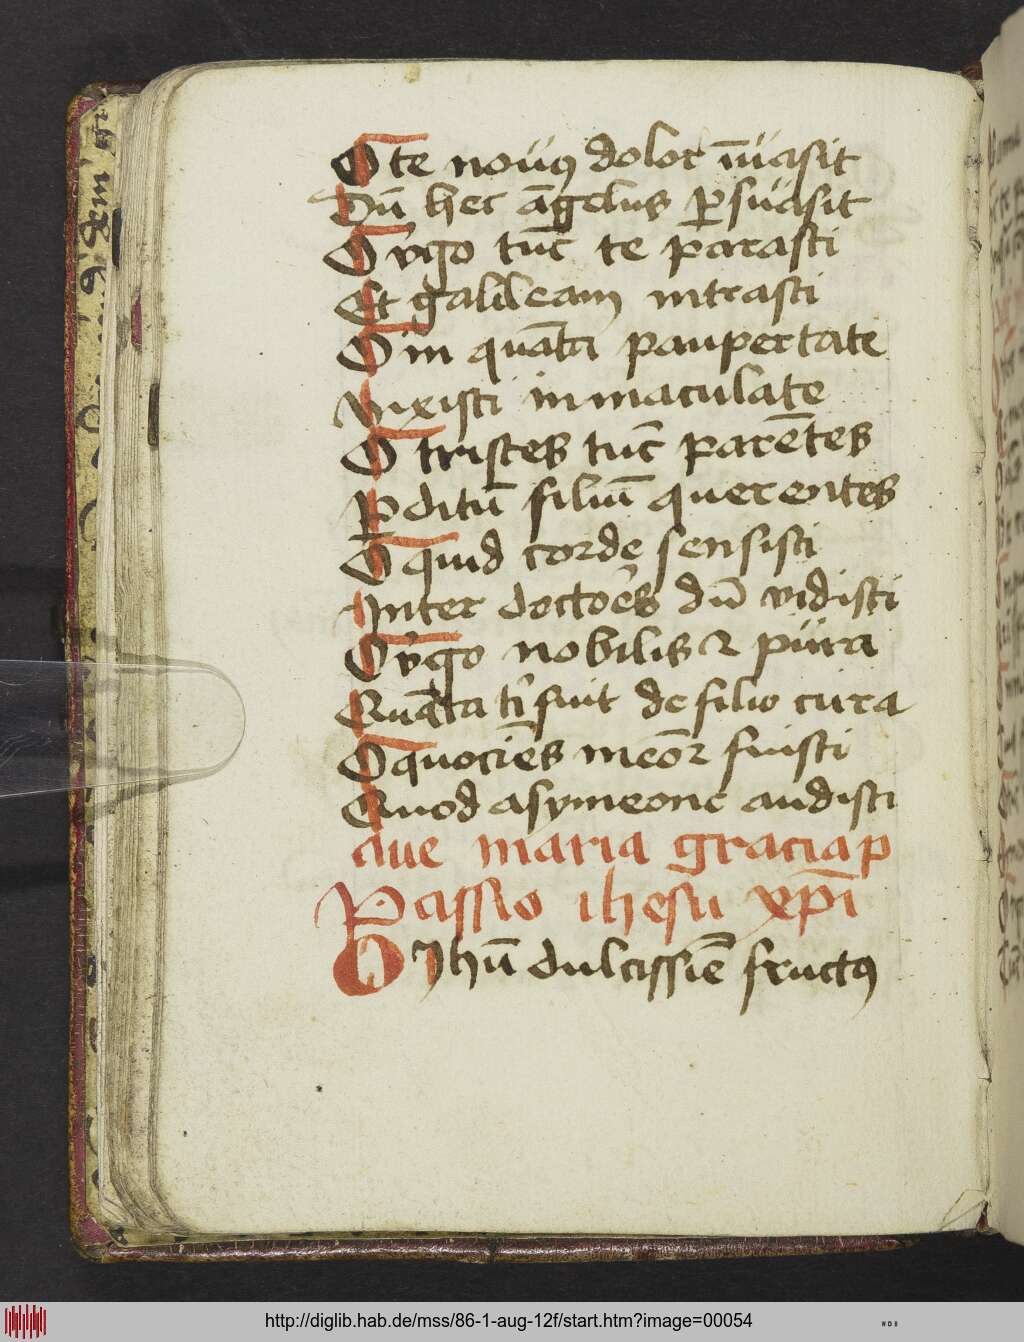 O te nouꝰ dolor īuasit
Dū hec āgelus ꝑsuasit
O v̄go tūc te parasti
Et galileam intrasti
O in quāta paupertate
vixisti inmaculate
O tristes tūc parētes
ꝑditū filiū querentes
O quid corde sensisti
Inter doctores dū vidisti
O v̄go nobilis ⁊ pura
Quāta ti fuit de filio cura
O quociēs meōꝛ fuisti
Quod asymeone audisti
aue maria gracia p
Passio ihesu xp̄i
O Ihū dulcissīe fructꝰ
http://diglib.hab.de/mss/86-1-aug-12f/start.htm?image=00054